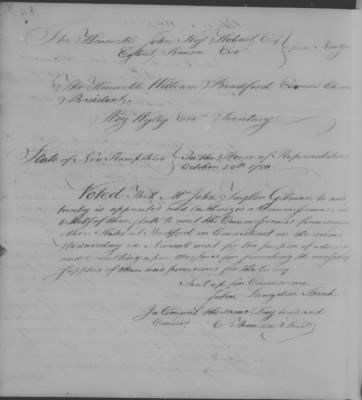 The Honorable John Sloss Hobart, Esqr
Egbert Benson Esqr
from New York
The Honorable William Bradford Esquire Chosen
President;
Hez Wyllys Esqr Secretary
State of New Hampshire
In the House of Representatives
October 20th 1780
Voted That Mr John Taylor Gilman be and
hereby is appointed and authorized a Commissioner in
behalf of this State to meet the Commissioners from
other States at Hartford in Connecticut on the second
Wednesday in November next for the purpose of advising
and consulting upon measures for furnishing the necessary
supplies of men and provisions for the Army
Sent up for Concurrence
John Langdon Speakr
In Council the same Day read and
Concurred
E Thompson Secrety